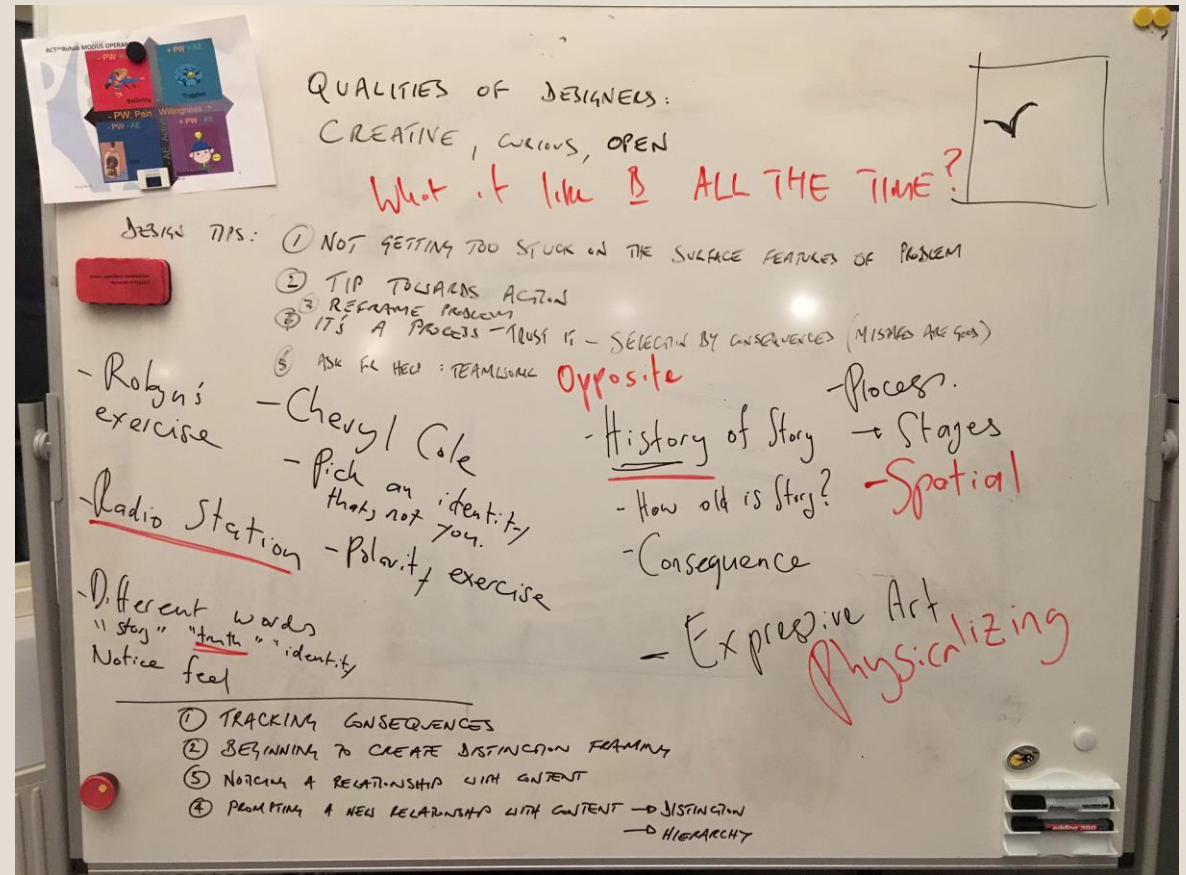 ACT Rehab MODUS OPERAN
+ PW + AE
Trygghet
- PW: Pain Willingness +
- PW - AE
+ PW - AE
QUALITIES OF DESIGNERS:
CREATIVE, CURIOUS, OPEN
What it like B ALL THE TIME?
DESIGN TIPS:
① NOT GETTING TOO STUCK ON THE SURFACE FEATURES OF PROBLEM
② TIP TOWARDS ACTION
③ REFRAME PROBLEM
④ IT'S A PROCESS - TRUST IT - SELECTION BY CONSEQUENCES (MISTAKES ARE GOOD)
⑤ ASK FOR HELP: TEAMWORK
Opposite
- Robyn's
exercise
- Radio Station
- Different words
"story" "truth" "identity
Notice feel
- Cheryl Cole
- Pick an identity
thats not you.
- Polarity exercise
- History of Story
- How old is Story?
- Consequence
- Process.
→ Stages
- Spatial
- Expressive Art
Physicalizing
① TRACKING CONSEQUENCES
② BEGINNING TO CREATE DISTINCTION FRAMING
③ NOTICING A RELATIONSHIP WITH CONTENT
④ PROMPTING A NEW RELATIONSHIP WITH CONTENT → DISTINCTION
→ HIERARCHY
edding 360